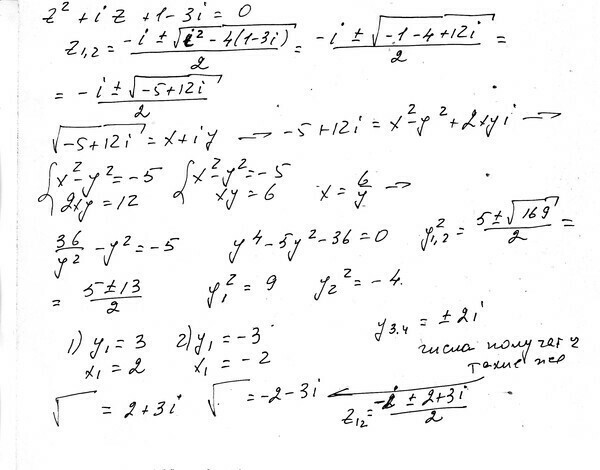 z² + iz + 1 - 3i = 0
z₁,₂ = (-i ± √(i² - 4(1-3i)))/2 = (-i ± √(-1-4+12i))/2 =
= (-i ± √(-5+12i))/2
√(-5+12i) = x+iy → -5+12i = x²-y²+2xyi →
{x²-y²=-5 {x²-y²=-5
2xy=12 xy=6 x = 6/y →
36/y² - y² = -5 y⁴-5y²-36=0 y²₁,₂ = (5±√169)/2 =
= (5±13)/2 y₁² = 9 y₂² = -4.
y₃.₄ = ±2i
1) y₁ = 3 2) y₁ = -3
x₁ = 2 x₁ = -2
числа получат
такие же
√ = 2+3i √ = -2-3i
z₁₂ = (-i ± 2+3i)/2